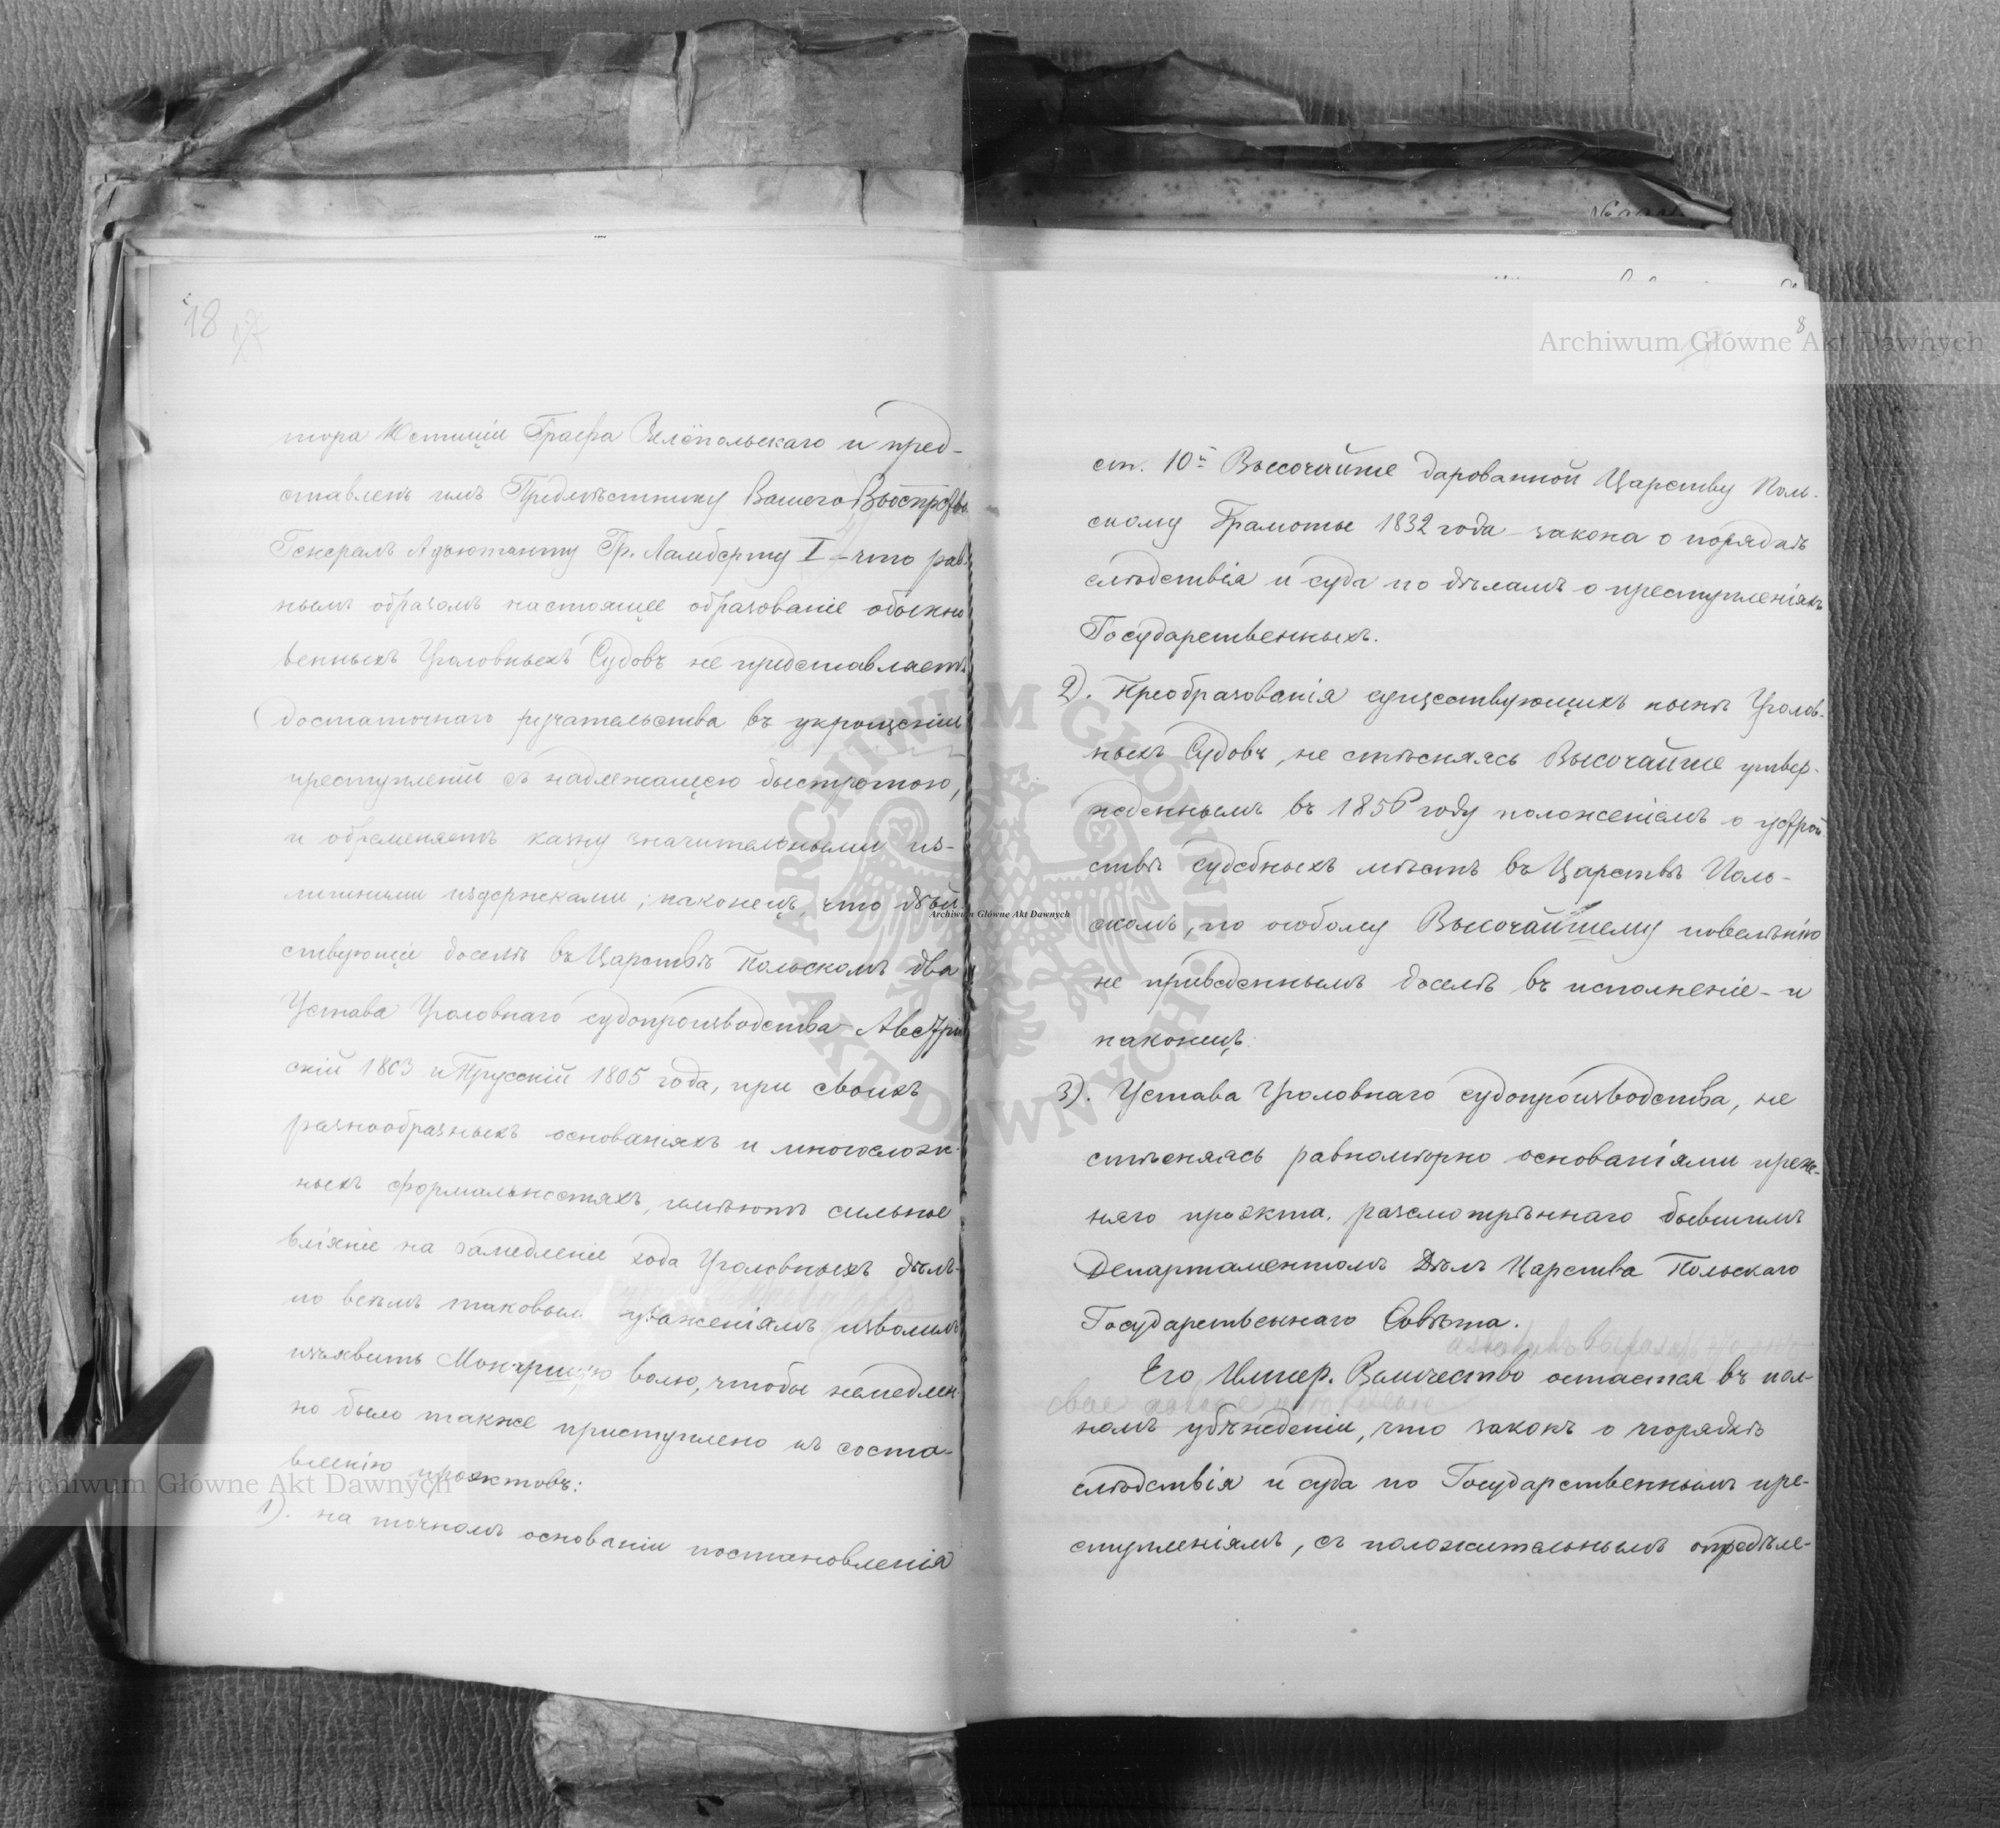 18
тора Юстиціи Графа Велёпольскаго и пред-
ставленъ имъ Предмѣстнику Вашего
Генералъ Адъютанту Гр. Ламберту I – что рав-
нымъ образомъ настоящее образованіе обыкно
венныхъ Уголовныхъ Судовъ не представляетъ
достаточнаго ручательства въ укрощеніи
преступленій съ надлежащею быстротою,
и обременяетъ казну значительными из-
лишними издержками; наконецъ, что дѣй
ствующіе доселѣ въ Царствѣ Польскомъ два
Устава Уголовнаго судопроизводства – Австрій
скій 1803 и Прусскій 1805 года, при своихъ
разнообразныхъ основаніяхъ и многослож-
ныхъ формальностяхъ, имѣютъ сильное
вліяніе на замедленіе хода Уголовныхъ дѣлъ-
по всѣмъ таковымъ уваженіямъ изволилъ
изъявить Монаршую волю, чтобы немедлен-
но было также приступлено къ соста-
вленію проэктовъ:
1). на точномъ основаніи постановленія
8
ст. 10й Высочайше дарованной Царству Поль-
скому Грамоты 1832 года – закона о порядкѣ
слѣдствія и суда по дѣламъ о преступленіяхъ
Государственныхъ.
2). Преобразованія существующихъ нынѣ Уголов-
ныхъ Судовъ, не стѣсняясь Высочайше утвер-
жденнымъ въ 1856 году положеніемъ о устрой
ствѣ судебныхъ мѣстъ въ Царствѣ Поль-
скомъ, по особому Высочайшему повелѣнію
не приведеннымъ доселѣ въ исполненіе – и
наконецъ:
3). Устава Уголовнаго судопроизводства, не
стѣсняясь равномѣрно основаніями преж-
няго проэкта, разсмотрѣннаго бывшимъ
Департаментомъ Дѣлъ Царства Польскаго
Государственнаго Совѣта.
Его Импер. Величество остается въ пол-
номъ убѣжденіи, что законъ о порядкѣ
слѣдствія и суда по Государственнымъ пре-
ступленіямъ, съ положительнымъ опредѣле-
Archiwum Główne Akt Dawnych
Archiwum Główne Akt Dawnych
Archiwum Główne Akt Dawnych
ARCHIWUM GŁÓWNE AKT DAWNYCH